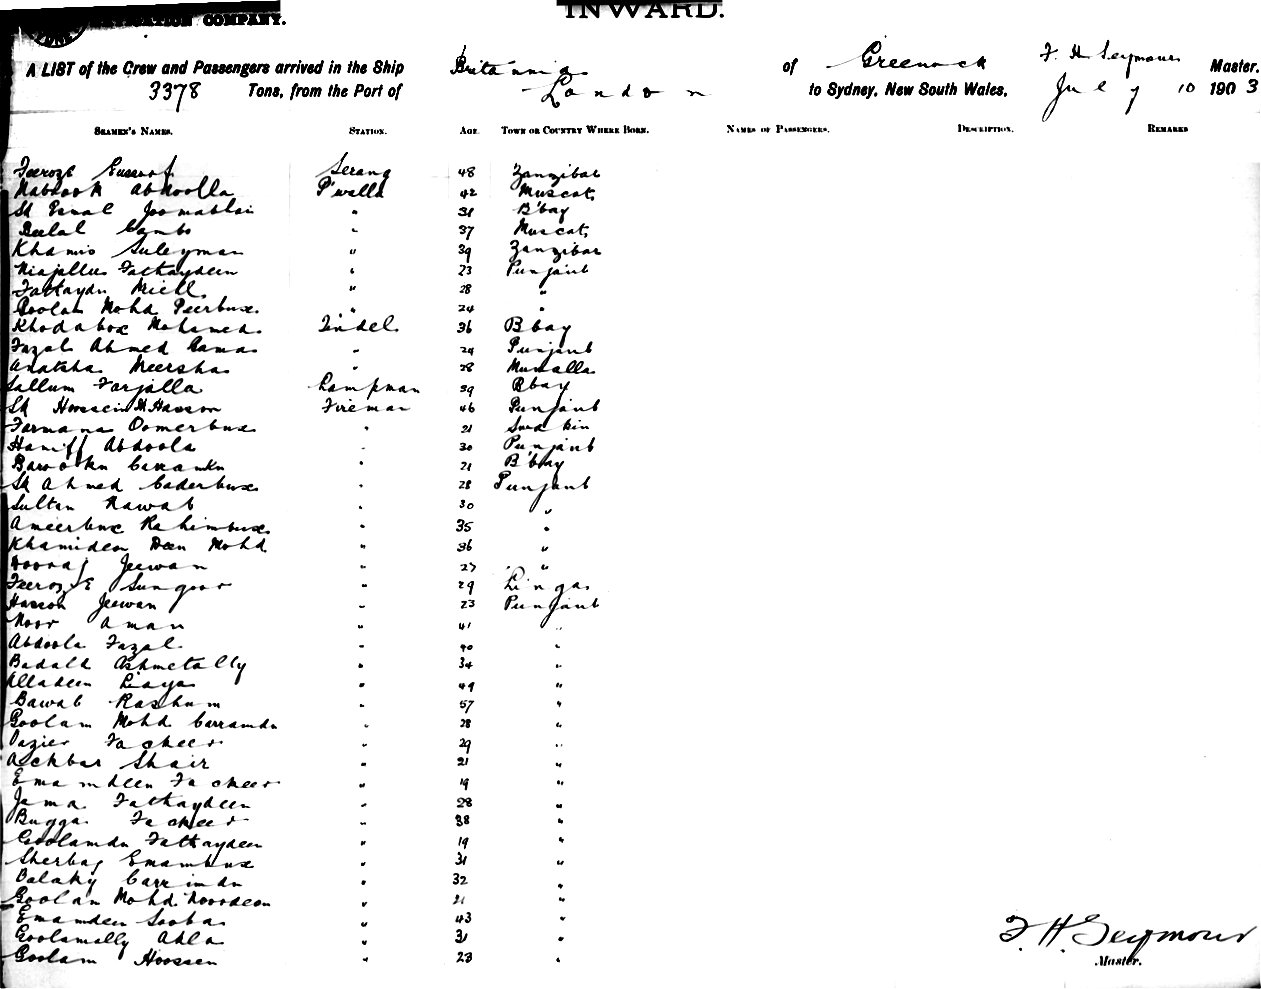 COMPANY. INWARD.
A LIST of the Crew and Passengers arrived in the Ship Britannia of Greenock F. H. Seymour Master.
3378 Tons, from the Port of London to Sydney, New South Wales, July 10 1903
SEAMEN'S NAMES. STATION. AGE. TOWN OR COUNTRY WHERE BORN. NAMES OF PASSENGERS. DESCRIPTION. REMARKS
Feeroze Serang 48 Zanzibar
Mabrook Abdoolla P'walla 42 Muscat
Sk Esmal Joomabhai " 31 B'bay
Beelal " 37 Muscat
Khamis Suleyman " 39 Zanzibar
Niajallus Fattaydeen " 23 Punjaub
Fattaydn " 28 "
Goolam Mohd Peerbux " 24 "
Khodabox Mohamed Tindel 36 B'bay
Fazal Ahmed " 24 Punjaub
Meersha " 28
Sallum Farjalla Lampman 39 B'bay
Sk Hoossein M Hasson Fireman 46 Punjaub
Farmana Oomerbux " 21
Haniff Abdoola " 30 Punjaub
" 21 B'bay
Sk Ahmed Caderbux " 28 Punjaub
Sultan Nawab " 30 "
Ameerbux Rahimbux " 35 "
Khamideen Deen Mohd " 36 "
Jeewan " 23 "
Feeroze Sungoor " 29 Linga
Hasson Jeewan " 23 Punjaub
Noor Aman " 41 "
Abdoola Fazal " 40 "
Badalla Ashmetally " 34 "
Alladeen " 49 "
Bawab " 57 "
Goolam Mohd Carramdn " 28 "
Vazier Facheer " 29 "
Achbar Shair " 21 "
Emamdeen Facheer " 19 "
Jama Fattaydeen " 28 "
Bugga Facheer " 38 "
Goolamdn Fattaydeen " 19 "
Sherbaj Emambux " 31 "
Carrimdn " 32 "
Goolam Mohd Noordeen " 21 "
Emamdeen Sooba " 43 "
Goolamally " 31 "
Goolam Hoossen " 23 "
F. H. Seymour
Master.